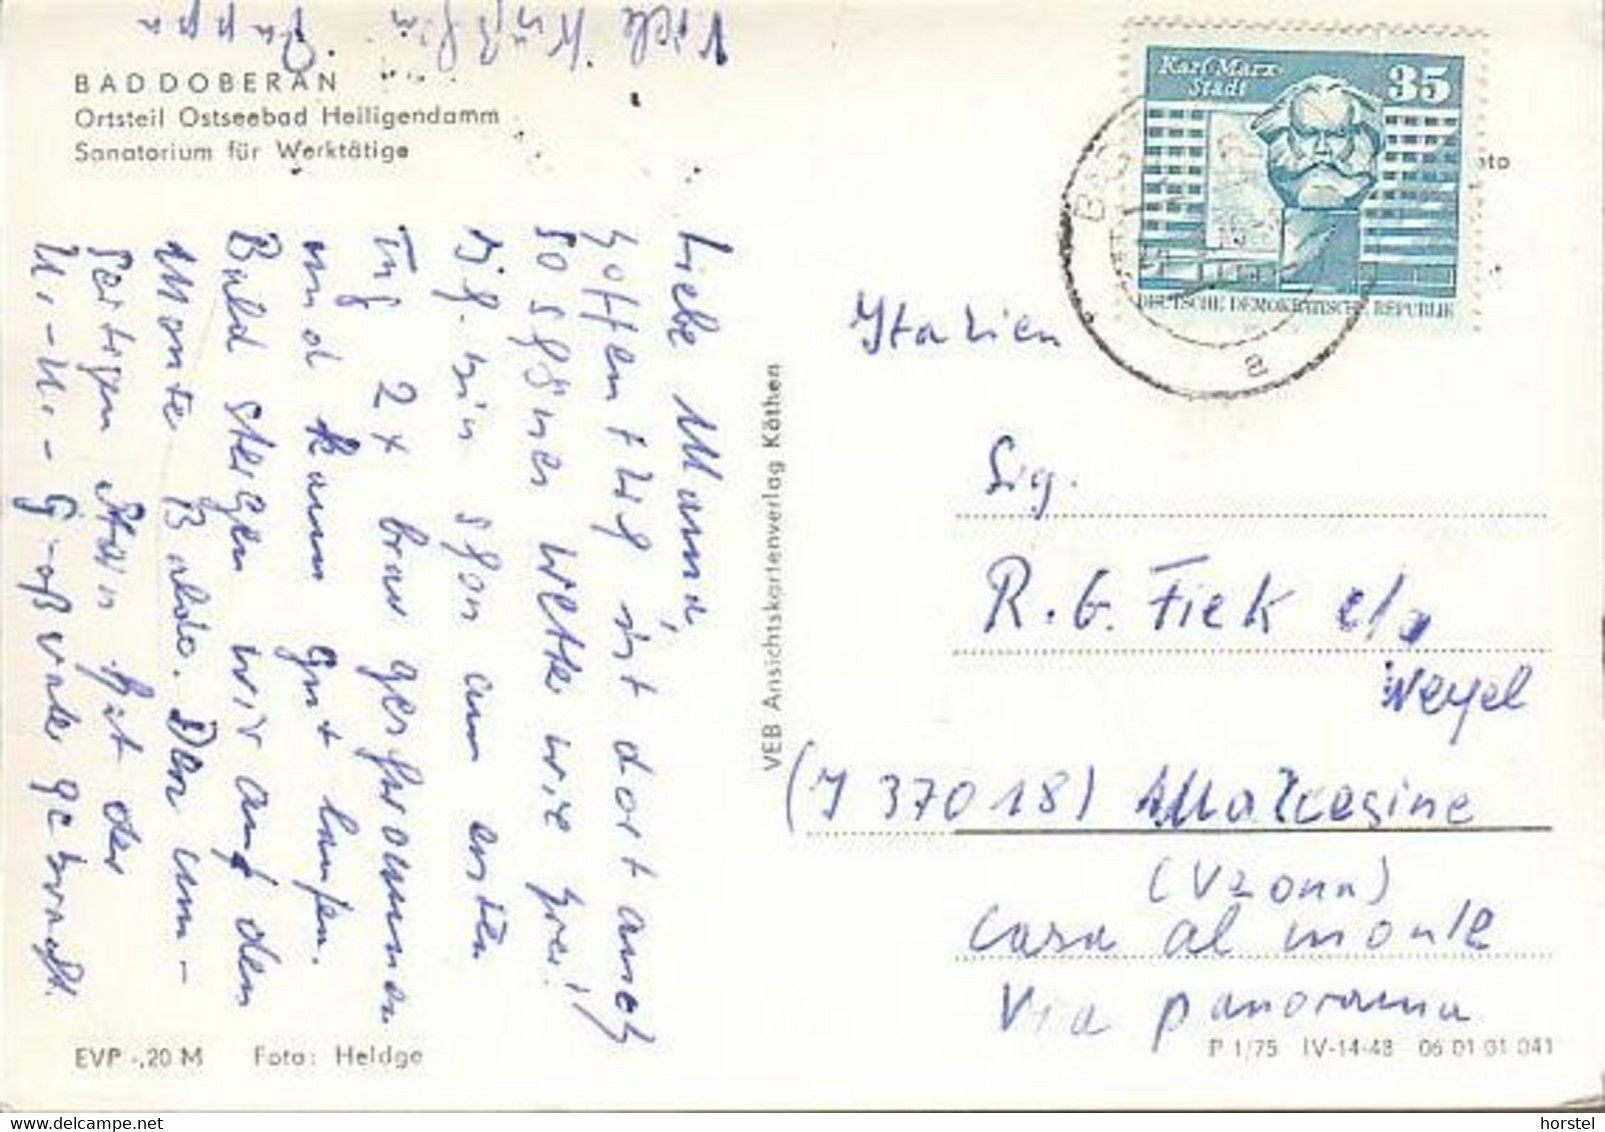 Viele Küßlein Pappa
BAD DOBERAN
Ortsteil Ostseebad Heiligendamm
Sanatorium für Werktätige
Liebe Mama,
hoffentlig ist dort auch
so sgönes Wetter wie hier!
Ig bin sgon am ersten
Tag 2x brav geschwommen
und kann gut laufen.
Bald steigen wir auf den
Monte Baldo. Den
hat der
gebracht.
EVP -,20 M Foto: Heldge
VEB Ansichtskartenverlag Köthen
Karl-Marx-
Stadt
35
DEUTSCHE DEMOKRATISCHE REPUBLIK
a
Italien
Sig.
R. G. Fiek c/o
Weyel
(I 37018) Malcesine
(Verona)
casa al monte
Via panorama
P 1/75 IV-14-48 06 01 01 041
horstel